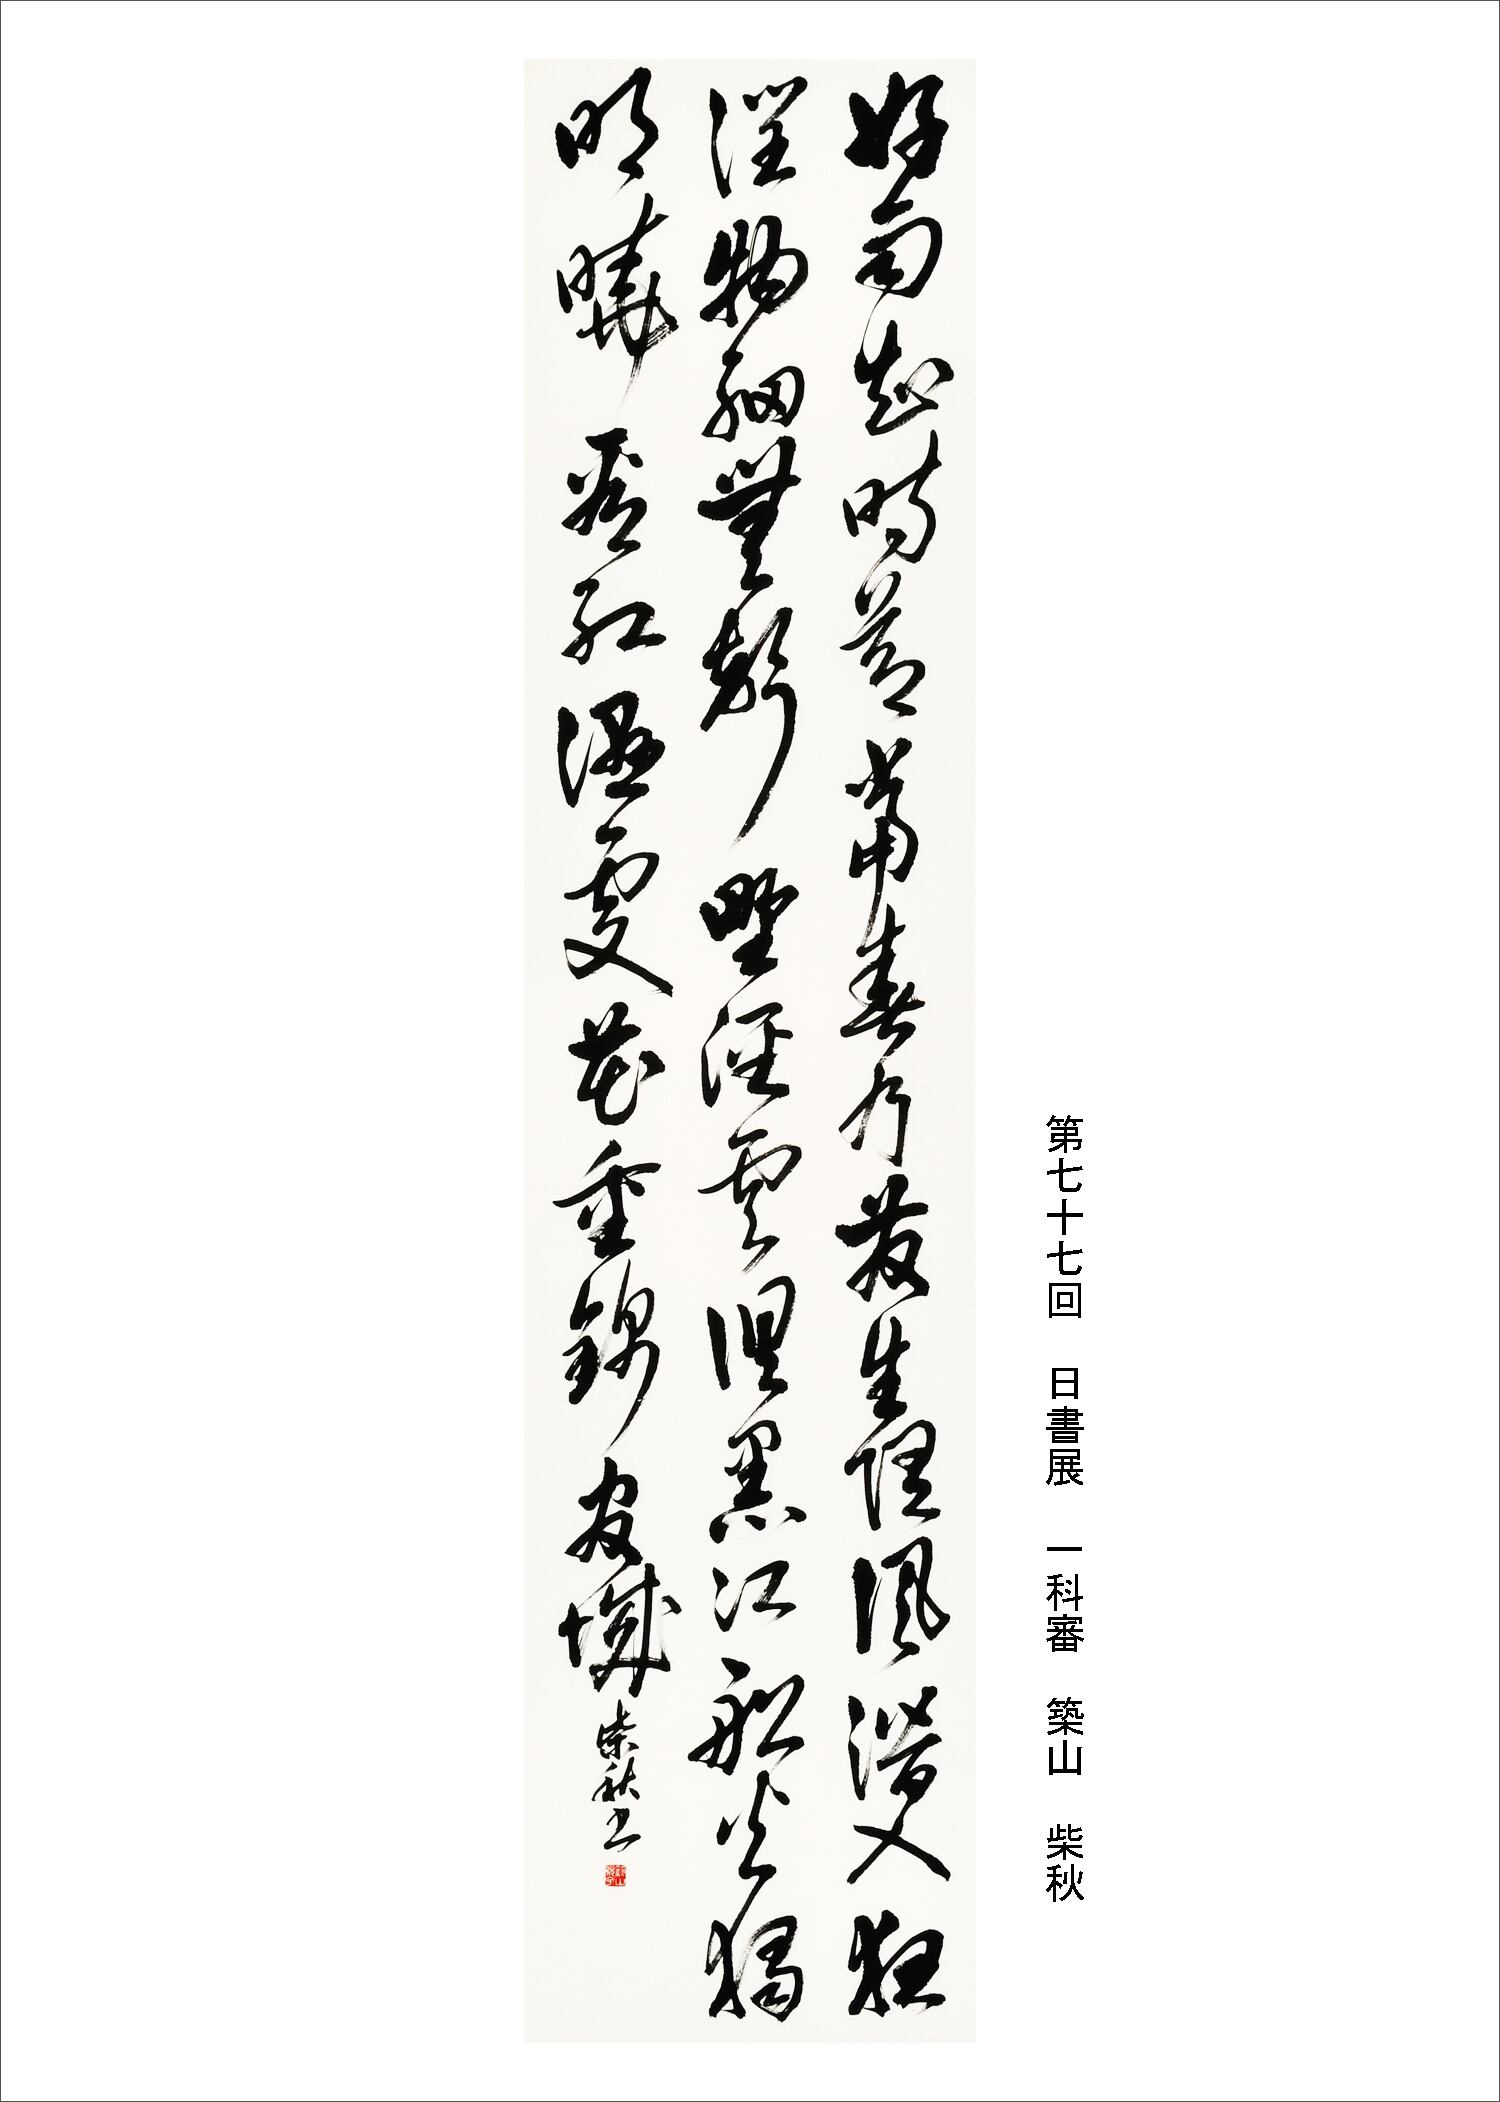 第七十七回　日書展　一科審　築山　柴秋
好雨知時節當春乃發生随風潛入夜
潤物細無聲野徑雲俱黑江船火獨
明曉看紅濕處花重錦官城 柴秋書